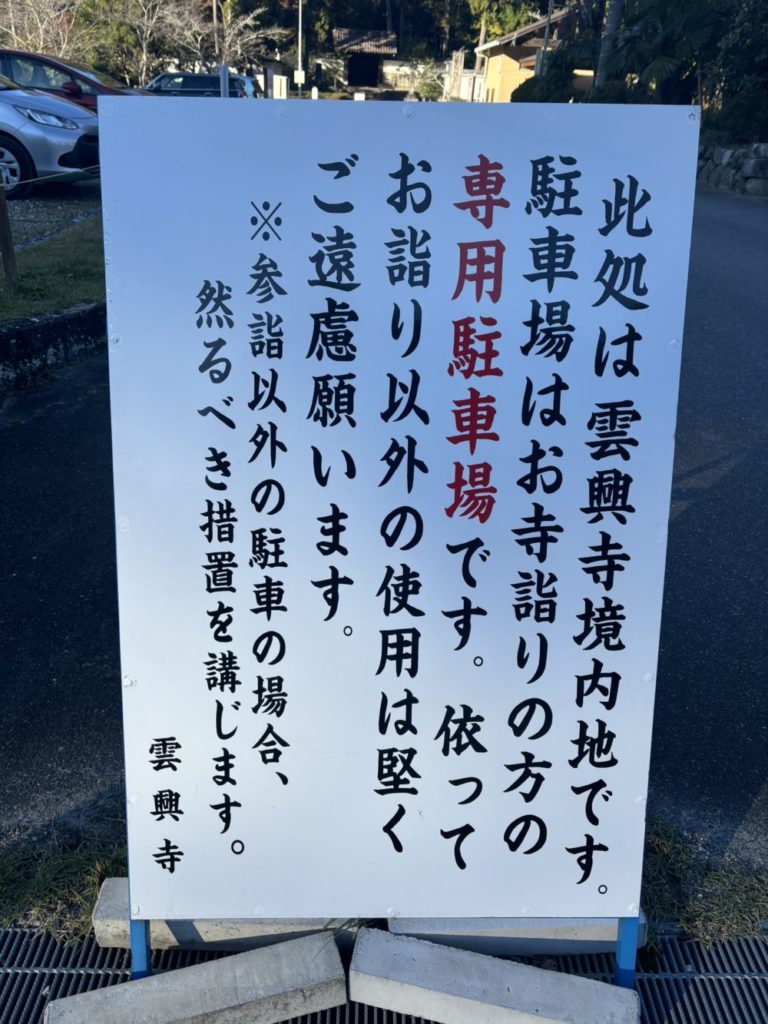 此処は雲興寺境内地です。
駐車場はお寺詣りの方の
専用駐車場です。依って
お詣り以外の使用は堅く
ご遠慮願います。
※参詣以外の駐車の場合、
然るべき措置を講じます。
雲興寺